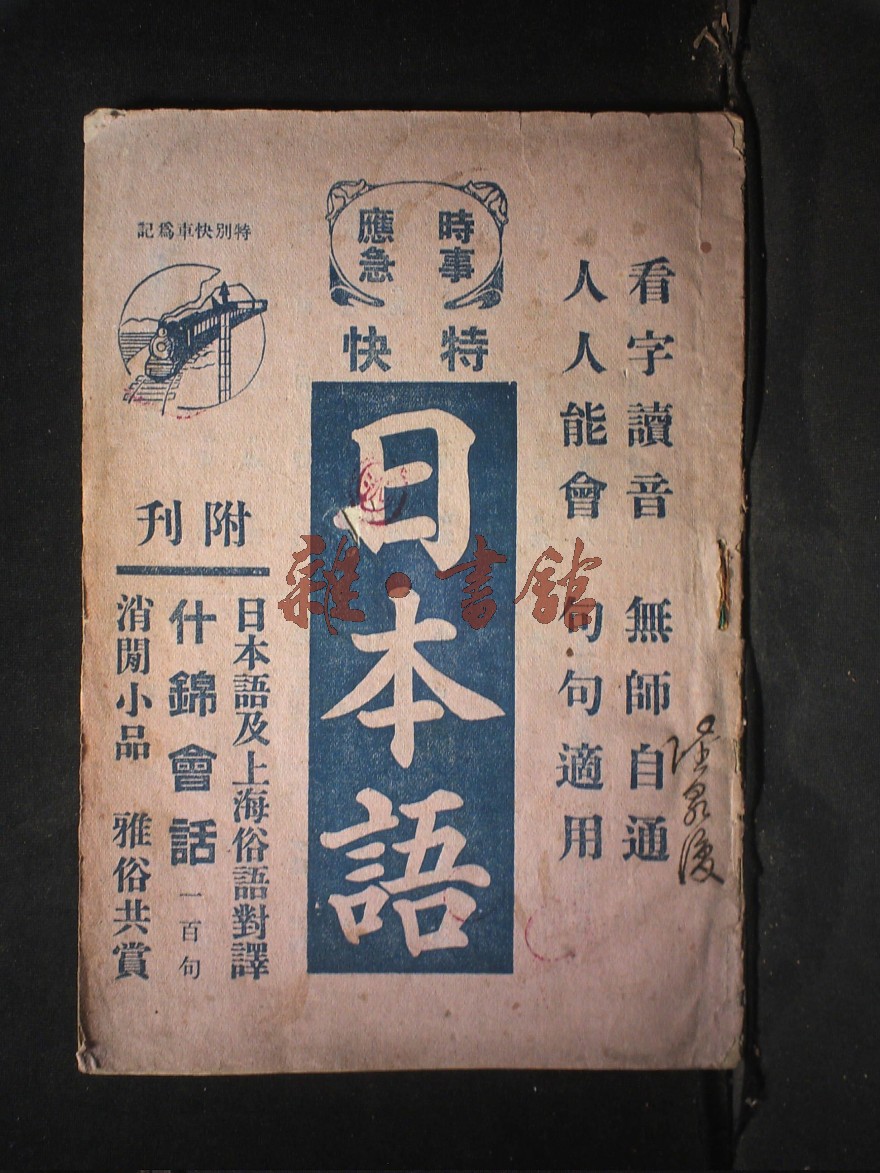 看字讀音　無師自通
人人能會　句句適用
時事
應急
特快
日本語
特別快車爲記
附刊
日本語及上海俗語對譯
什錦會話 一百句
消閒小品　雅俗共賞
雜·書館